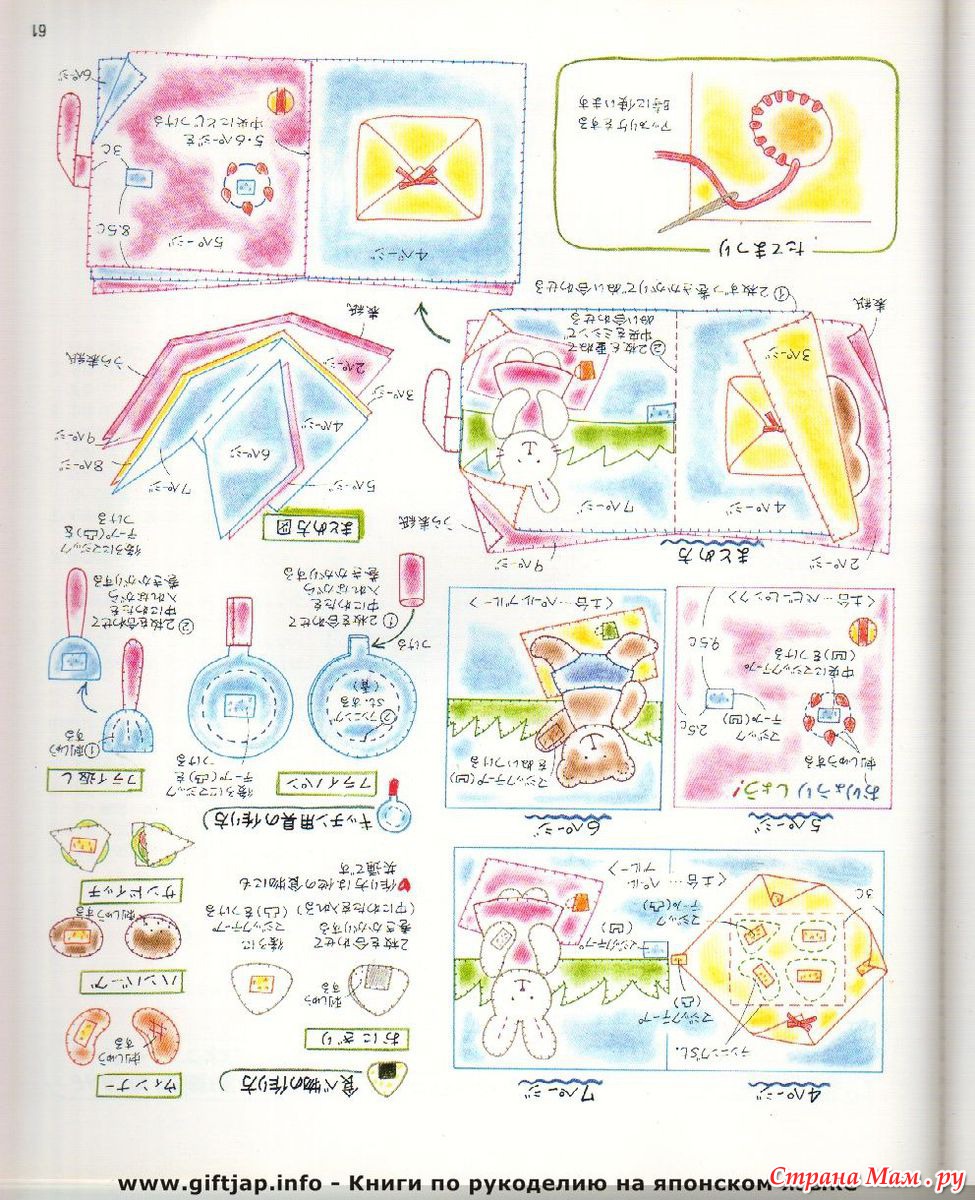 4ページ
ランニングSt.
マジックテープ
(凸)
3C
マジック
テープ(凸)
<土台…ペールブルー>
7ページ
マジックテープ
(凹)
食べ物の作り方
おにぎり
刺しゅうする
2枚を合わせて
巻きかがりする
(中にわたを入れる)
後ろに
マジックテープ
(凸)をつける
作り方は他の食物にも
共通です
ウィンナー
刺しゅうする
ハンバーグ
刺しゅうする
サンドイッチ
5ページ
おりょうりしよう!
刺しゅうする
中央にマジックテープ
(凹)をつける
マジック
テープ(凹)
2.5C
9.5C
<土台…ベビーピンク>
6ページ
マジックテープ(凹)
をぬいつける
<土台…ペールブルー>
キッチン用具の作り方
フライパン
②ランニング
St.する
(青)
つける
①2枚を合わせて
中にわたを
入れながら
巻きかがりする
後ろにマジック
テープ(凸)を
つける
フライ返し
①刺しゅう
する
②2枚を合わせて
中にわたを
入れながら
巻きかがりする
後ろにマジック
テープ(凸)を
つける
まとめ方
2ページ
9ページ
うら表紙
4ページ
7ページ
3ページ
表紙
①2枚ずつ巻きかがりでぬい合わせる
②2枚を重ねて
中央をミシンで
ぬい合わせる
まとめ方図
5ページ
4ページ
3ページ
2ページ
表紙
6ページ
7ページ
8ページ
9ページ
うら表紙
たてまつり
アップリケをする
時に使います
4ページ
5ページ
5・6ページを
中央にとじつける
8.5C
3C
6ページ
61
www.giftjap.info - Книги по рукоделию на японском
Страна Мам.ру